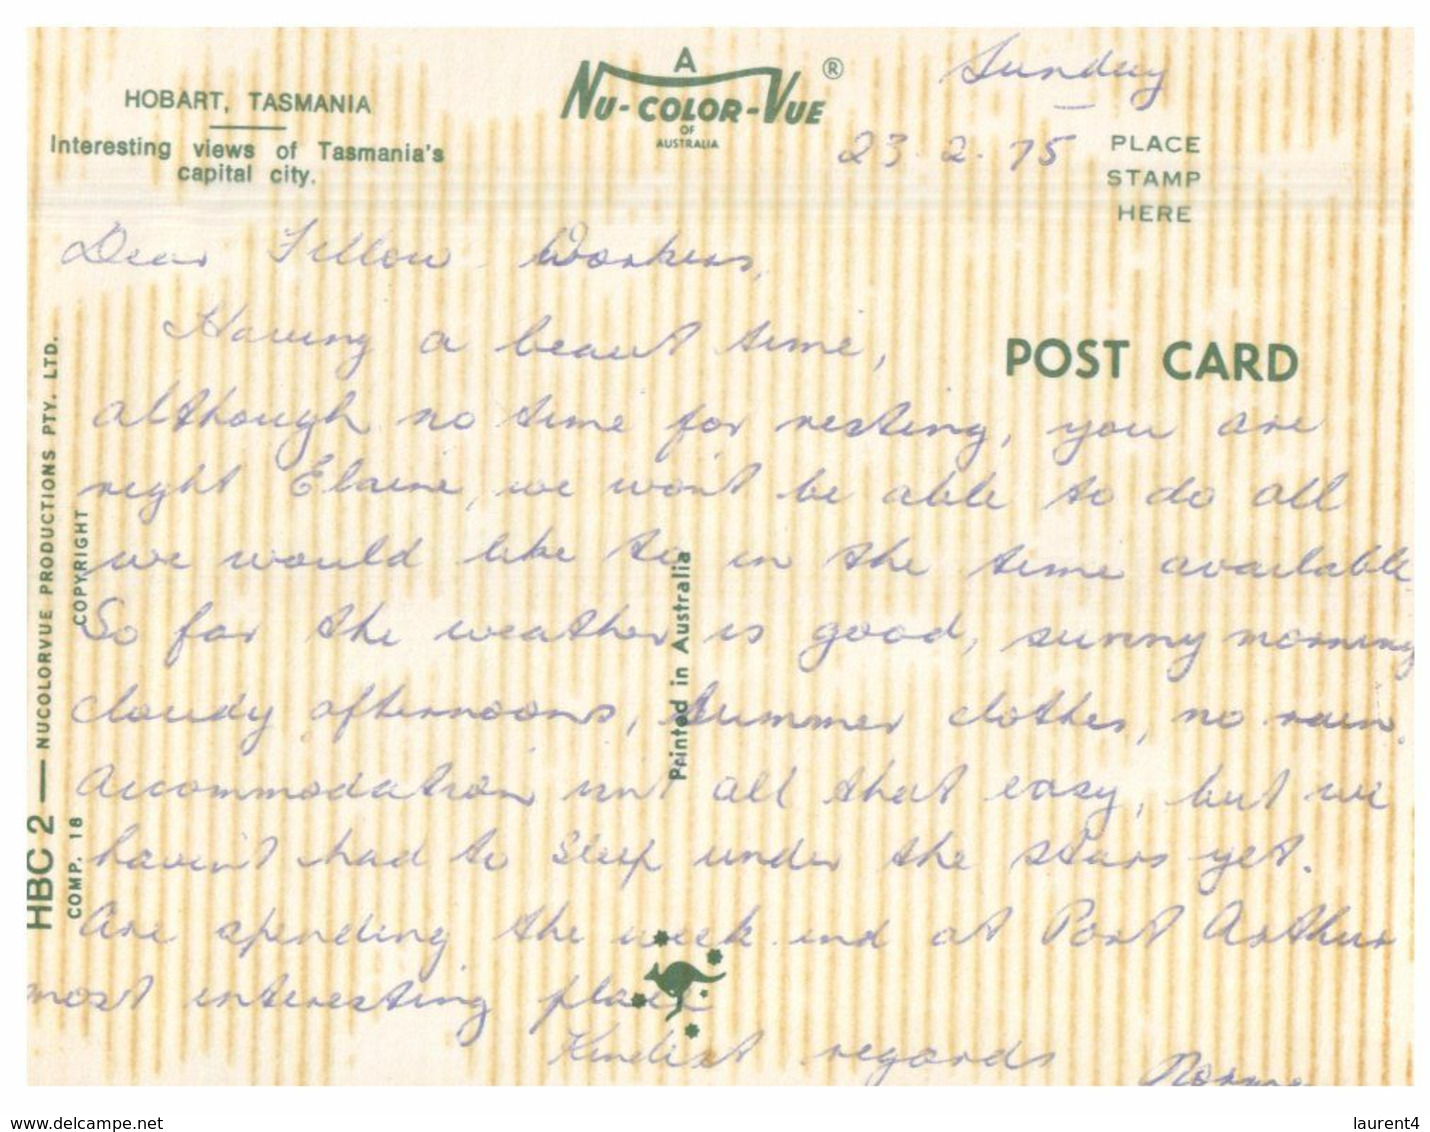 Sunday
A
NU-COLOR-VUE ®
OF
AUSTRALIA
HOBART, TASMANIA
Interesting views of Tasmania's
capital city.
23.2.75
PLACE
STAMP
HERE
Dear Fellow Workers,
Having a beaut time,
POST CARD
although no time for resting, you are
right Elaine, we won't be able to do all
we would like to in the time available
So far the weather is good, sunny morning
cloudy afternoons, summer clothes, no rain.
Accommodation isn't all that easy, but we
haven't had to sleep under the stars yet.
Are spending the week end at Port Arthur
most interesting place
Kindest regards
Norma
HBC 2 — NUCOLORVUE PRODUCTIONS PTY. LTD.
COMP. 18 COPYRIGHT
Printed in Australia
www.delcampe.net
laurent4